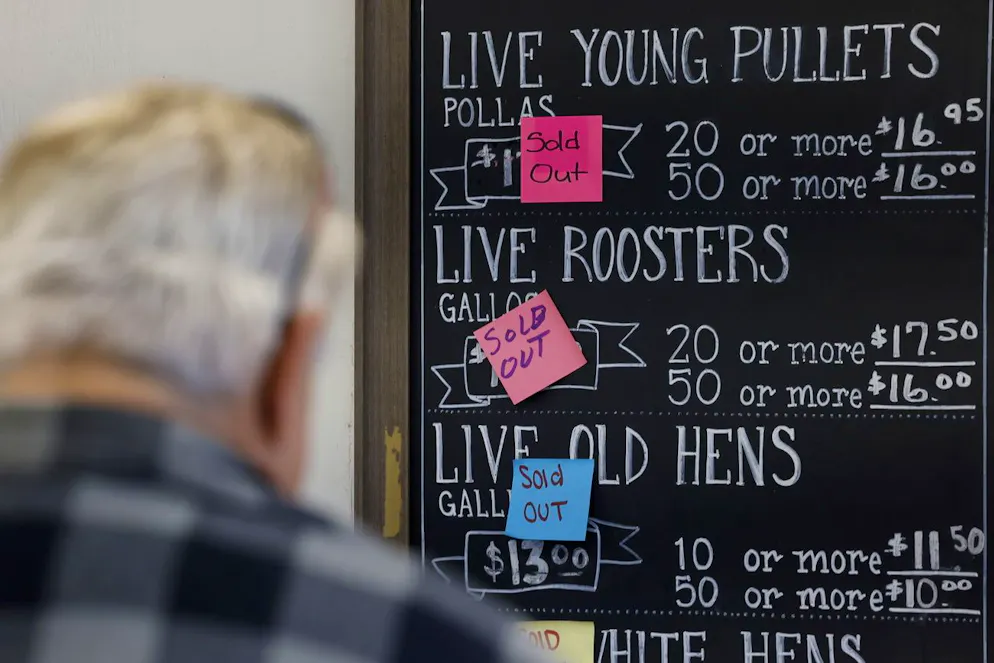 LIVE YOUNG PULLETS
POLLAS
Sold
Out
20 or more $16.95
50 or more $16.00
LIVE ROOSTERS
GALLOS
SOLD
OUT
20 or more $17.50
50 or more $16.00
LIVE OLD HENS
Sold
OUT
$13.00
10 or more $11.50
50 or more $10.00
HENS